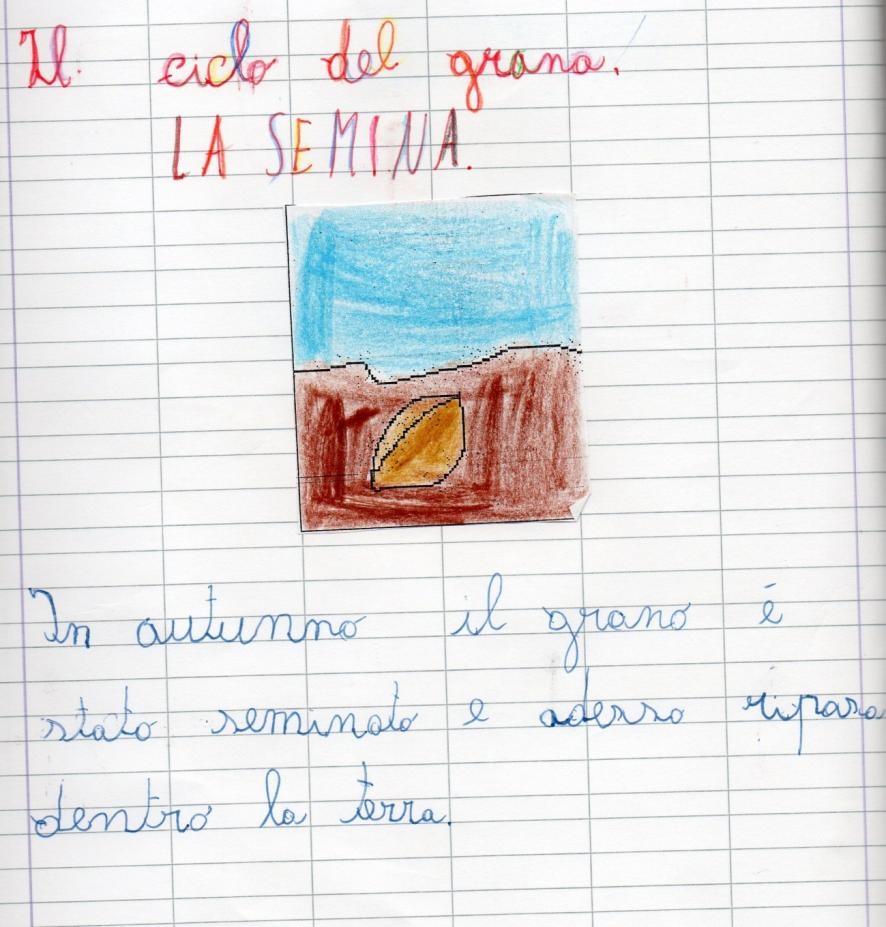 Il ciclo del grano.
LA SEMINA.
In autunno il grano é
stato seminato e adesso riposa
dentro la terra.